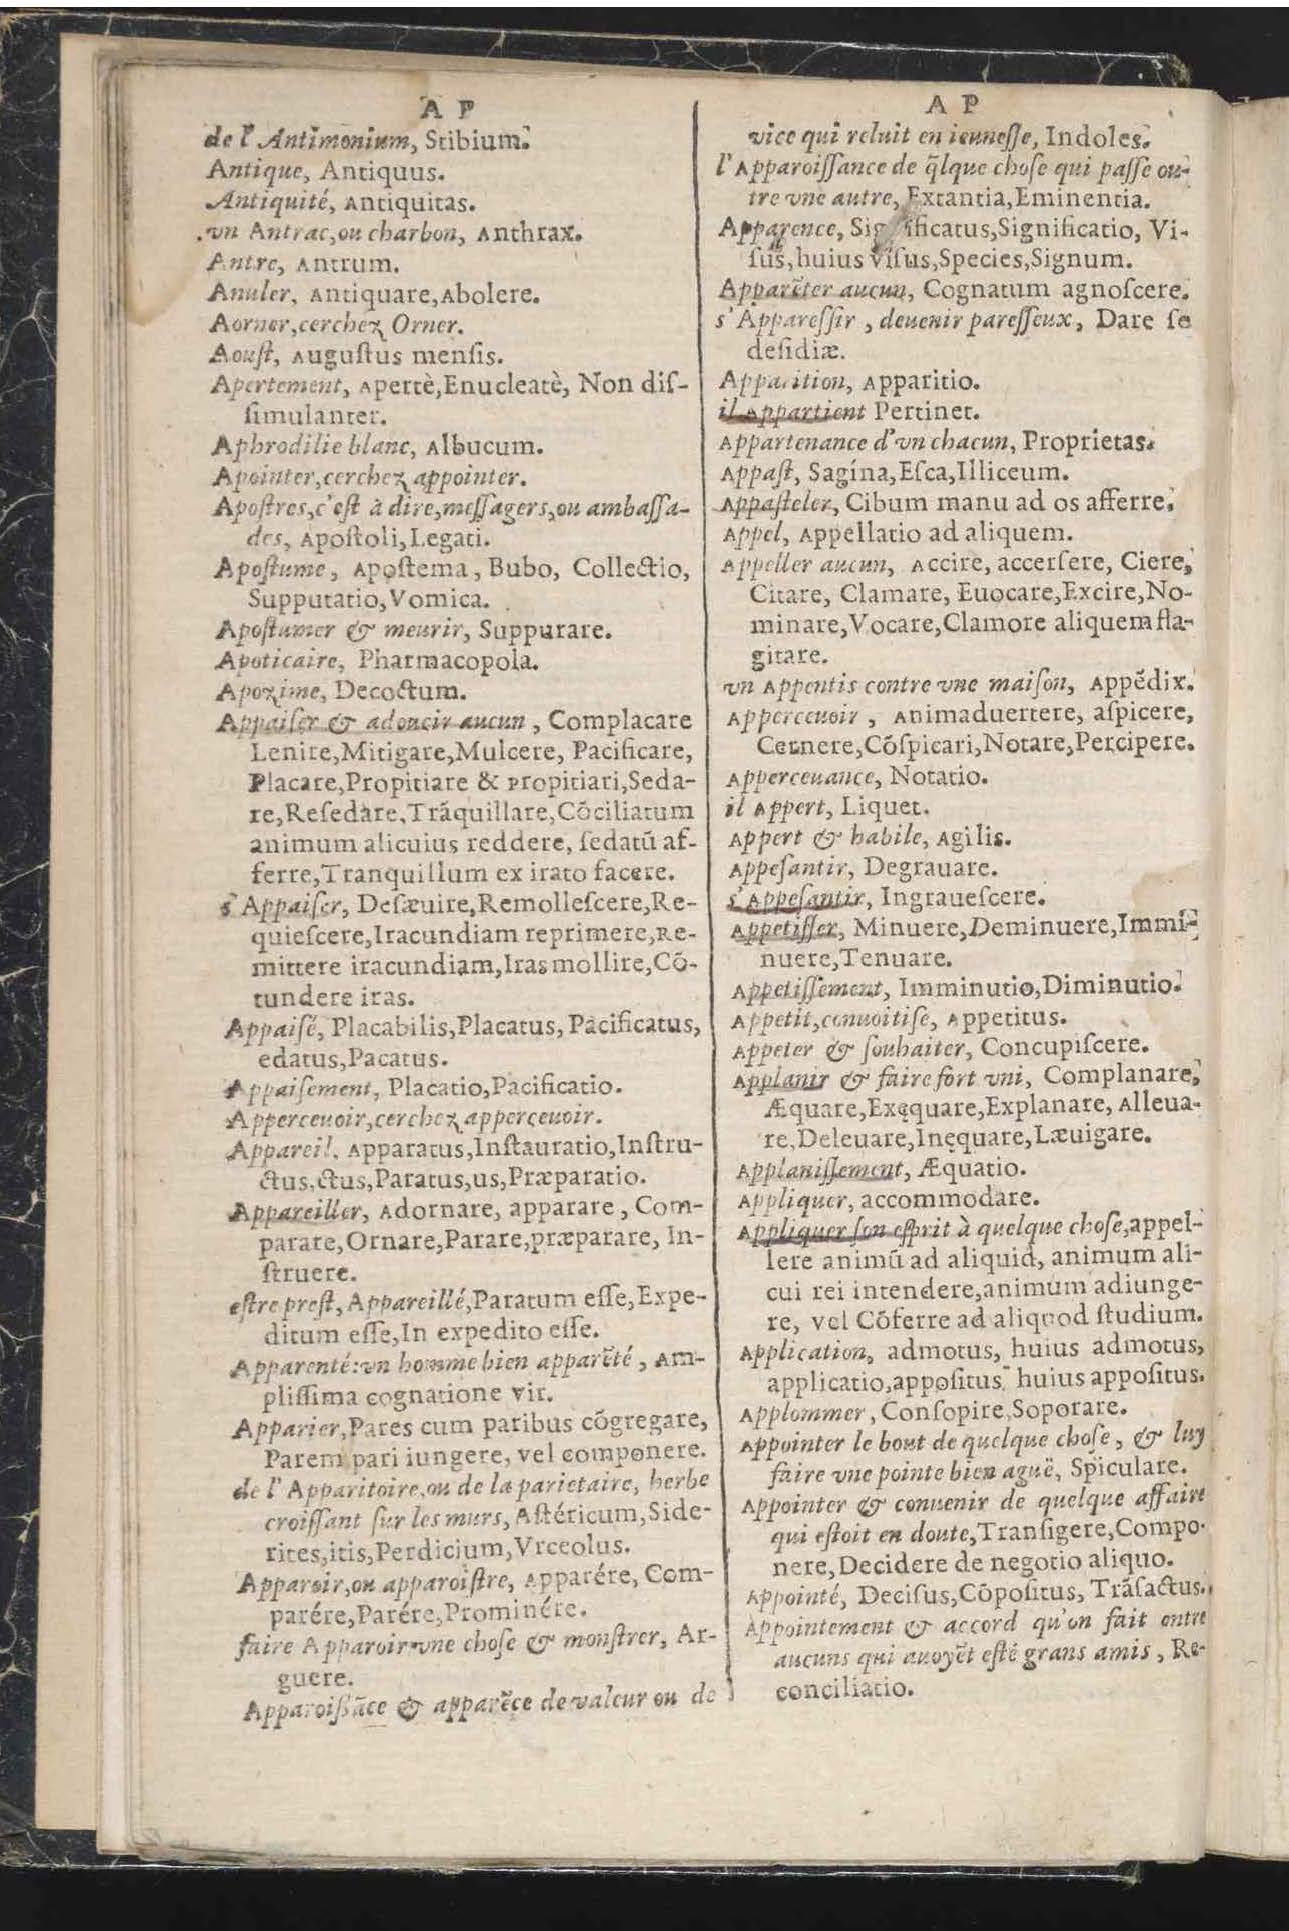 A P
de l'Antimonium, Stibium.
Antique, Antiquus.
Antiquité, Antiquitas.
vn Antrac, ou charbon, Anthrax.
Antre, Antrum.
Anuler, Antiquare, Abolere.
Aorner, cerchez Orner.
Aouſt, Auguſtus menſis.
Apertement, Apertè, Enucleatè, Non diſ-
ſimulanter.
Aphrodilie blanc, Albucum.
Apointer, cerchez appointer.
Apoſtres, c'eſt à dire, meſſagers, ou ambaſſa-
des, Apoſtoli, Legati.
Apoſtume, Apoſtema, Bubo, Collectio,
Supputatio, Vomica.
Apoſtumer & meurir, Suppurare.
Apoticaire, Pharmacopola.
Apozime, Decoctum.
Appaiſer & adoucir aucun, Complacare
Lenire, Mitigare, Mulcere, Pacificare,
Placare, Propitiare & propitiari, Seda-
re, Reſedare, Trãquillare, Cõciliatum
animum alicuius reddere, ſedatũ af-
ferre, Tranquillum ex irato facere.
s'Appaiſer, Deſæuire, Remolleſcere, Re-
quieſcere, Iracundiam reprimere, Re-
mittere iracundiam, Iras mollire, Cõ-
tundere iras.
Appaiſé, Placabilis, Placatus, Pacificatus,
edatus, Pacatus.
Appaiſement, Placatio, Pacificatio.
Apperceuoir, cerchez apperçeuoir.
Appareil, Apparatus, Inſtauratio, Inſtru-
ctus, ctus, Paratus, us, Præparatio.
Appareiller, Adornare, apparare, Com-
parare, Ornare, Parare, præparare, In-
ſtruere.
eſtre preſt, Appareillé, Paratum eſſe, Expe-
ditum eſſe, In expedito eſſe.
Apparenté: vn homme bien apparẽté, Am-
pliſſima cognatione vir.
Apparier, Pares cum paribus cõgregare,
Parem pari iungere, vel componere.
de l'Apparitoire, ou de la parietaire, herbe
croiſſant ſur les murs, Aſtéricum, Side-
rites, itis, Perdicium, Vrceolus.
Apparoir, ou apparoiſtre, Apparére, Com-
parére, Parére, Prominére.
faire Apparoir vne choſe & monſtrer, Ar-
guere.
Apparoiſſãce & apparẽce de valeur ou de
A P
vice qui reluit en ieuneſſe, Indoles.
l'Apparoiſſance de q̃lque choſe qui paſſe ou-
tre vne autre, Extantia, Eminentia.
Apparence, Significatus, Significatio, Vi-
ſus, huius viſus, Species, Signum.
Apparẽter aucun, Cognatum agnoſcere.
s'Appareſſir, deuenir pareſſeux, Dare ſe
deſidiæ.
Apparition, Apparitio.
il Appartient Pertinet.
Appartenance d'vn chacun, Proprietas.
Appaſt, Sagína, Eſca, Illiceum.
Appaſteler, Cibum manu ad os afferre.
Appel, Appellatio ad aliquem.
Appeller aucun, Accire, accerſere, Ciere,
Citare, Clamare, Euocare, Excire, No-
minare, Vocare, Clamore aliquem fla-
gitare.
vn Appentis contre vne maiſon, Appẽdix.
Apperceuoir, Animaduertere, aſpicere,
Cernere, Cõſpicari, Notare, Percipere.
Apperceuance, Notatio.
il Appert, Liquet.
Appert & habile, Agilis.
Appeſantir, Degrauare.
s'Appeſantir, Ingraueſcere.
Appetiſſer, Minuere, Deminuere, Immi-
nuere, Tenuare.
Appetiſſement, Imminutio, Diminutio.
Appetit, conuoitiſe, Appetitus.
Appeter & ſouhaiter, Concupiſcere.
Applanir & faire fort vni, Complanare,
Æquare, Exęquare, Explanare, Alleua-
re, Deleuare, Inęquare, Læuigare.
Applaniſſement, Æquatio.
Appliquer, accommodare.
Appliquer ſon eſprit à quelque choſe, appel-
lere animũ ad aliquid, animum ali-
cui rei intendere, animum adiunge-
re, vel Cõferre ad aliquod ſtudium.
Application, admotus, huius admotus,
applicatio, appoſitus, huius appoſitus.
Applommer, Conſopire, Soporare.
Appointer le bout de quelque choſe, & luy
faire vne pointe bien aguë, Spiculare.
Appointer & conuenir de quelque affaire
qui eſtoit en doute, Tranſigere, Compo-
nere, Decidere de negotio aliquo.
Appointé, Deciſus, Cõpoſitus, Trãſactus.
Appointement & accord qu'on fait entre
aucuns qui auoyẽt eſté grans amis, Re-
conciliatio.